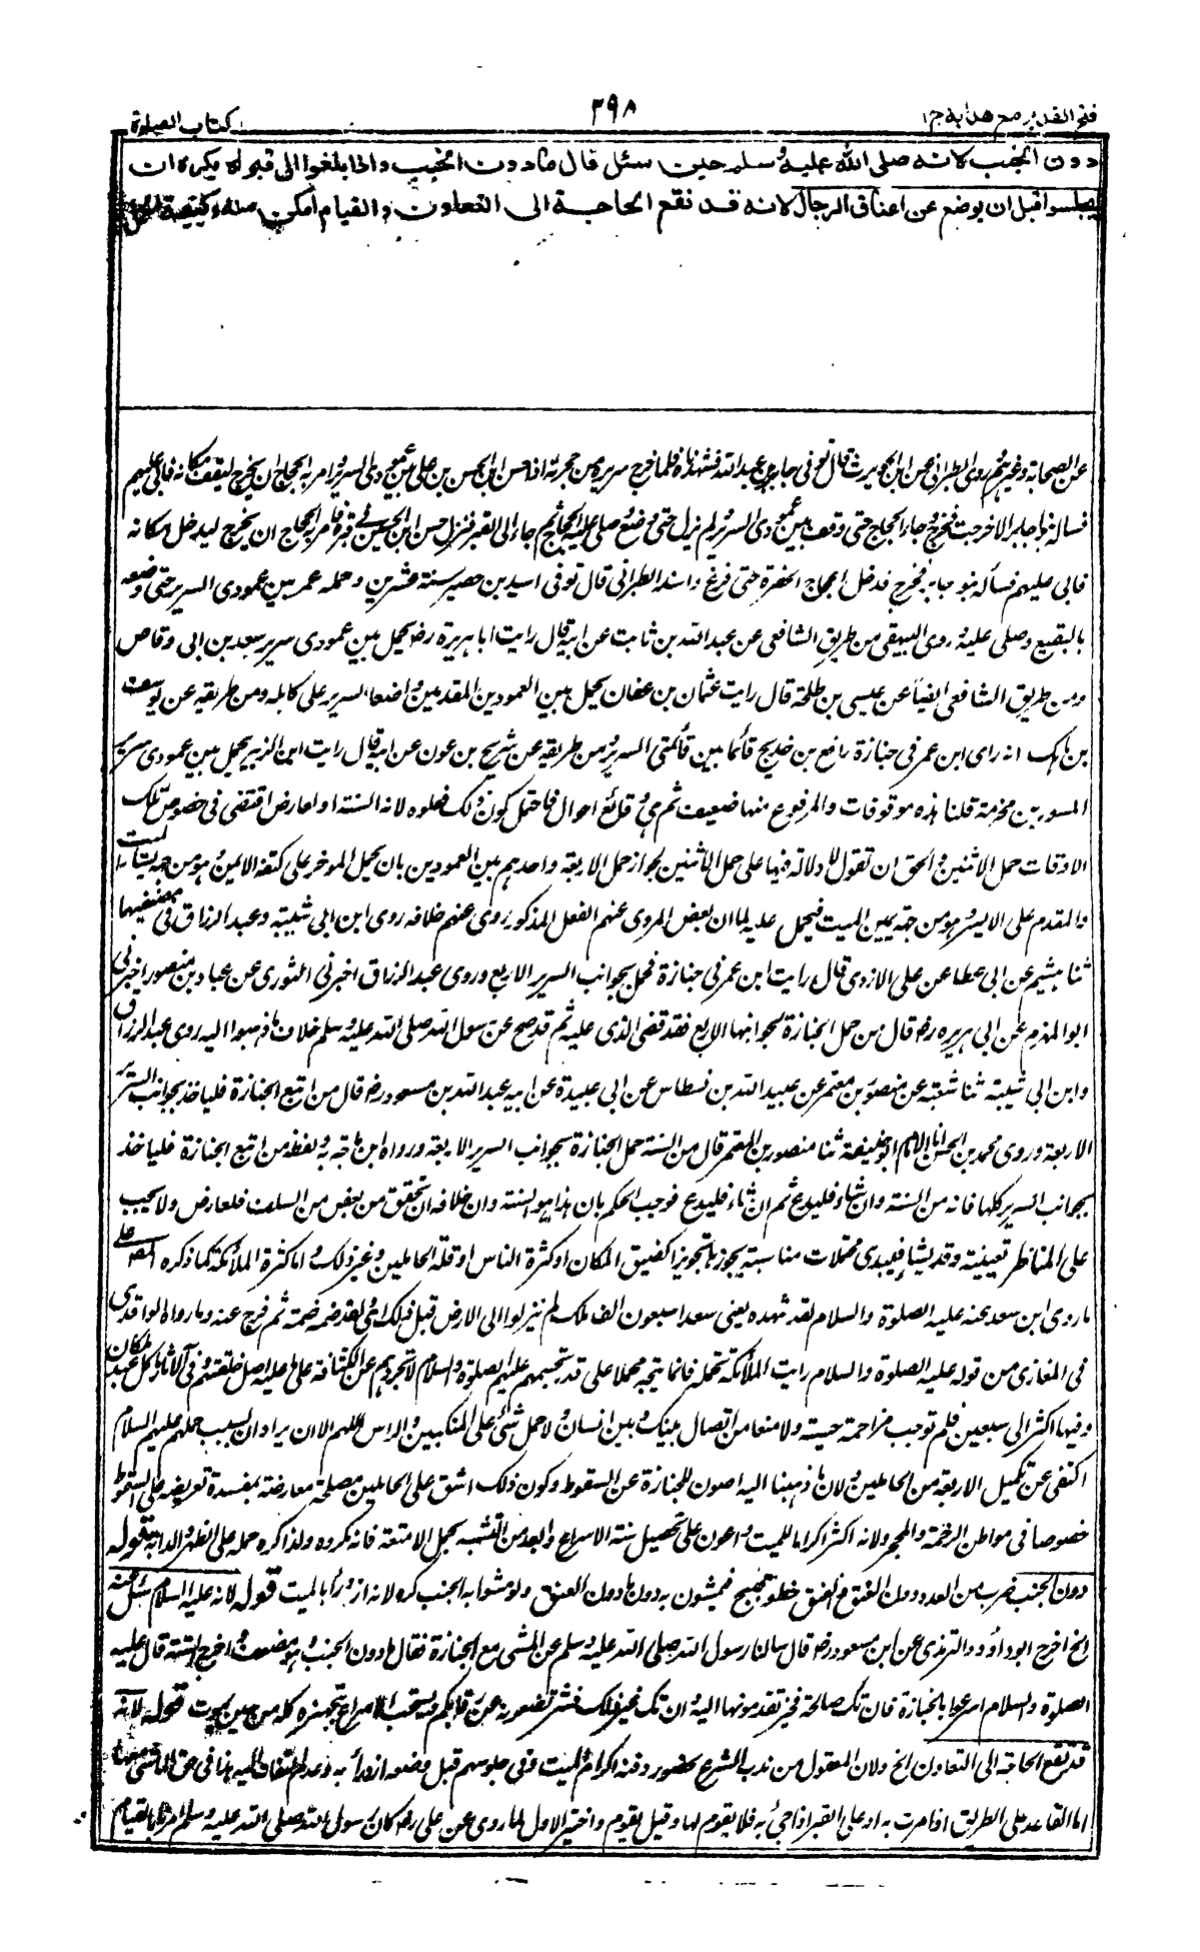 فتح القدير مع هدايه ج ١
٣٩٨
كتاب الصلوة
دون الخبب لانه صلى الله عليه وسلم حين سئل قال مادون الخبب واذا بلغوا الى قبره يكره ان
يجلسوا قبل ان يوضع عن اعناق الرجال لانه قد تقع الحاجة الى التعاون والقيام امكن منه وكيفية الحمل
عن الصحابة وغيرهم روى الطبرانى عن ابن الحويرث قال توفى جابر بن عبد الله فشهدناه فلما خرج سريره من حجرته اذا حسن ابن الحسن بن على بين عمودى السرير فامر به الحجاج ان يخرج ليقف مكانه فابى عليهم
فسأله بنو جابر الا خرجت فخرج وجاء الحجاج حتى وقف بين عمودى السرير ولم يزل حتى وضع وصلى عليه الحجاج ثم جاء الى القبر فنزل حسن ابن الحسن فى قبره فامر به الحجاج ان يخرج ليدخل مكانه
فابى عليهم فسأله بنو جابر فخرج فدخل الحجاج الحفرة حتى فرغ واسند الطبرانى قال توفى اسيد بن حضير سنة عشرين وحمله عمر بين عمودى السرير حتى وضعه
بالبقيع وصلى عليه وروى البيهقى من طريق الشافعى عن عبد الله بن ثابت عن ابيه قال رايت ابا هريرة رض يحمل بين عمودى سرير سعد بن ابى وقاص
ومن طريق الشافعى ايضا عن عيسى بن طلحة قال رايت عثمان بن عفان يحمل بين العمودين المقدمين واضعا السرير على كاهله ومن طريقه عن يوسف
بن ماهك انه راى ابن عمر فى جنازة رافع بن خديج قائما بين قائمتى السرير ومن طريقه عن شريح بن عون عن ابيه قال رايت ابن الزبير يحمل بين عمودى سرير
المسور بن مخرمة قلنا هذه موقوفات والمرفوع منها ضعيف ثم هى وقائع احوال فاحتمل كون ذلك فعلوه لانه السنة او لعارض اقتضى فى خصوص تلك
الاوقات حمل الاثنين والحق ان تقول لا دلالة فيها على حمل الاثنين لجواز حمل الاربعة واحدهم بين العمودين بان يحمل المؤخر على كتفه الايمن وهو من جهة يسار الميت
والمقدم على الايسر وهو من جهة يمين الميت فيحمل عليه لما ان بعض المروى عنهم الفعل المذكور روى عنهم خلافه روى ابن ابى شيبة وعبد الرزاق فى مصنفيهما
ثنا هشيم عن ابى عطا عن على الازدى قال رايت ابن عمر فى جنازة فحمل بجوانب السرير الاربع وروى عبد الرزاق اخبرنى الثورى عن عباد بن منصور اخبرنى
ابو المهزم عن ابى هريره رض قال من حمل الجنازة بجوانبها الاربع فقد قضى الذى عليه ثم قد صح عن رسول الله صلى الله عليه وسلم خلاف ما ذهبوا اليه روى عبد الرزاق
وابن ابى شيبة ثنا شعبة عن منصور بن معتمر عن عبيد الله بن نسطاس عن ابى عبيدة عن ابيه عبد الله بن مسعود رض قال من اتبع الجنازة فلياخذ بجوانب السرير
الاربعة وروى محمد بن الحسن انا الامام ابو حنيفة ثنا منصور بن المعتمر قال من السنة حمل الجنازة بجوانب السرير الاربعة ورواه ابن ماجه به ولفظه من اتبع الجنازة فلياخذ
بجوانب السرير كلها فانه من السنة وان شاء فليدع ثم ان شاء فليدع فوجب الحكم بان هذا هو السنة وان خلافه ان تحقق من بعض من السلف فلعارض ولا يجب
على المناظر تعيينه وقد يشاء فيبدى محتملات مناسبة يجوز بها تجويزا كضيق المكان او كثرة الناس او قلة الحاملين وغير ذلك واما كثرة الملائكة كما ذكره المص على
ما روى ابن سعد عنه عليه الصلوة والسلام لقد شهده يعنى سعدا سبعون الف ملك لم ينزلوا الى الارض قبل ذلك ولقد ضمه ضمة ثم فرج عنه وما رواه الواقدى
فى المغازى من قوله عليه الصلوة والسلام رايت الملائكة تحمله فانما يتجه محملا على تقدير تجسمهم عليهم الصلوة والسلام لا تجردهم عن الكثافة على ما عليه اصل خلقتهم
وفيها اكثر الى سبعين فلم توجب مزاحمة حسية ولا منعا من اتصال بينك وبين انسان ولا حمل شئ على المنكبين والراس اللهم الا ان يراد ان بسبب حملهم عليهم السلام
اكتفى عن تكميل الاربعة من الحاملين ولان ما ذهبنا اليه اصون للجنازة عن السقوط وكون ذلك اشق على الحاملين مصلحة معارضة بمفسدة تعريضه على السقوط
خصوصا فى مواطن الزحمة والمحجر ولانه اكثر اكراما للميت واعون على تحصيل سنة الاسراع وابعد من التشبه بحمل الامتعة فانه مكروه ولذا كره حمله على الظهر والدابة قوله
دون الخبب ضرب من العدو دون العنق والعنق خطو فسيح فيمشون به دون ما دون العنق ولو مشوا به الخبب كره لانه ازدراء بالميت قوله لانه عليه السلام سئل عنه
الخ اخرج ابوداؤد والترمذى عن ابن مسعود رض قال سالنا رسول الله صلى الله عليه وسلم عن المشى مع الجنازة فقال ما دون الخبب وهو مضعف واخرج الستة قال عليه
الصلوة والسلام اسرعوا بالجنازة فان تك صالحة فخير تقدمونها اليه وان تك غير ذلك فشر تضعونه عن رقابكم ويستحب الاسراع بتجهيزه كله من حين يموت قوله لانه
قد تقع الحاجة الى التعاون الخ ولان المعقول من ندب الشرع لحضور دفنه اكرام الميت وفى جلوسهم قبل وضعه ازدراء به وعدم التفات اليه هذا فى حق الماشى معها
اما القاعد على الطريق اذا مرت به او على القبر اذا جئ به فلا يقوم لها وقيل يقوم واختير الاول لما روى عن على رض كان رسول الله صلى الله عليه وسلم امرنا بالقيام